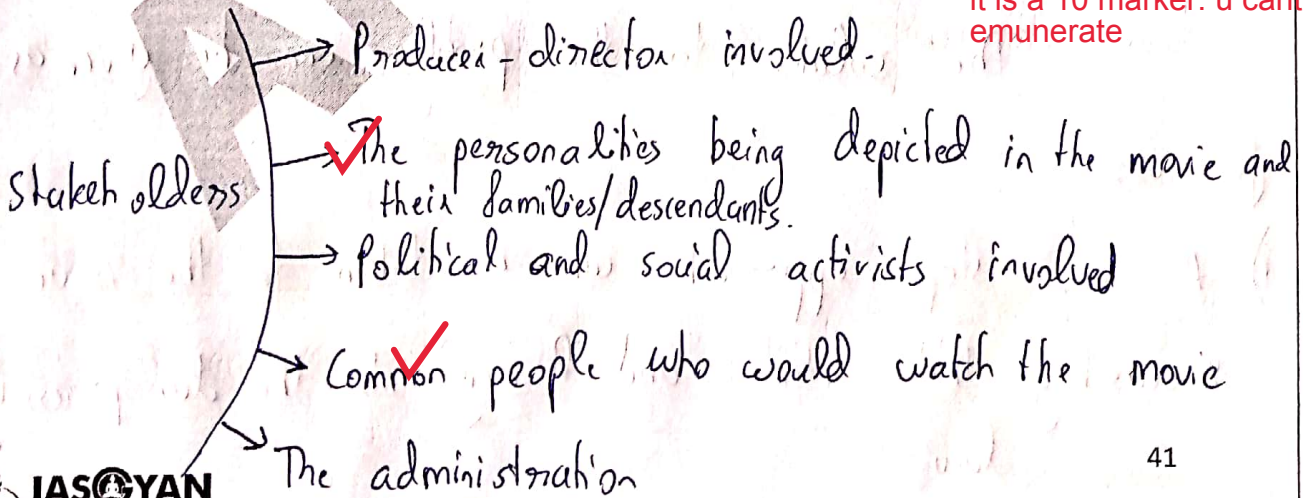 it is a 10 marker. u cant
emunerate
Producer - director involved.
The personalities being depicted in the movie and
their families/descendants.
Stakeholders
Political and social activists involved
Common people who would watch the movie
The administration
41
IASGYAN